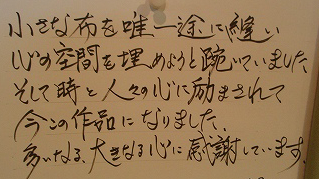 小さな布を唯一途に縫い
心の空間を埋めようと踠いていました、
そして時と人々の心に励まされて
今この作品になりました、
多いなる、大きなる心に感謝しています、